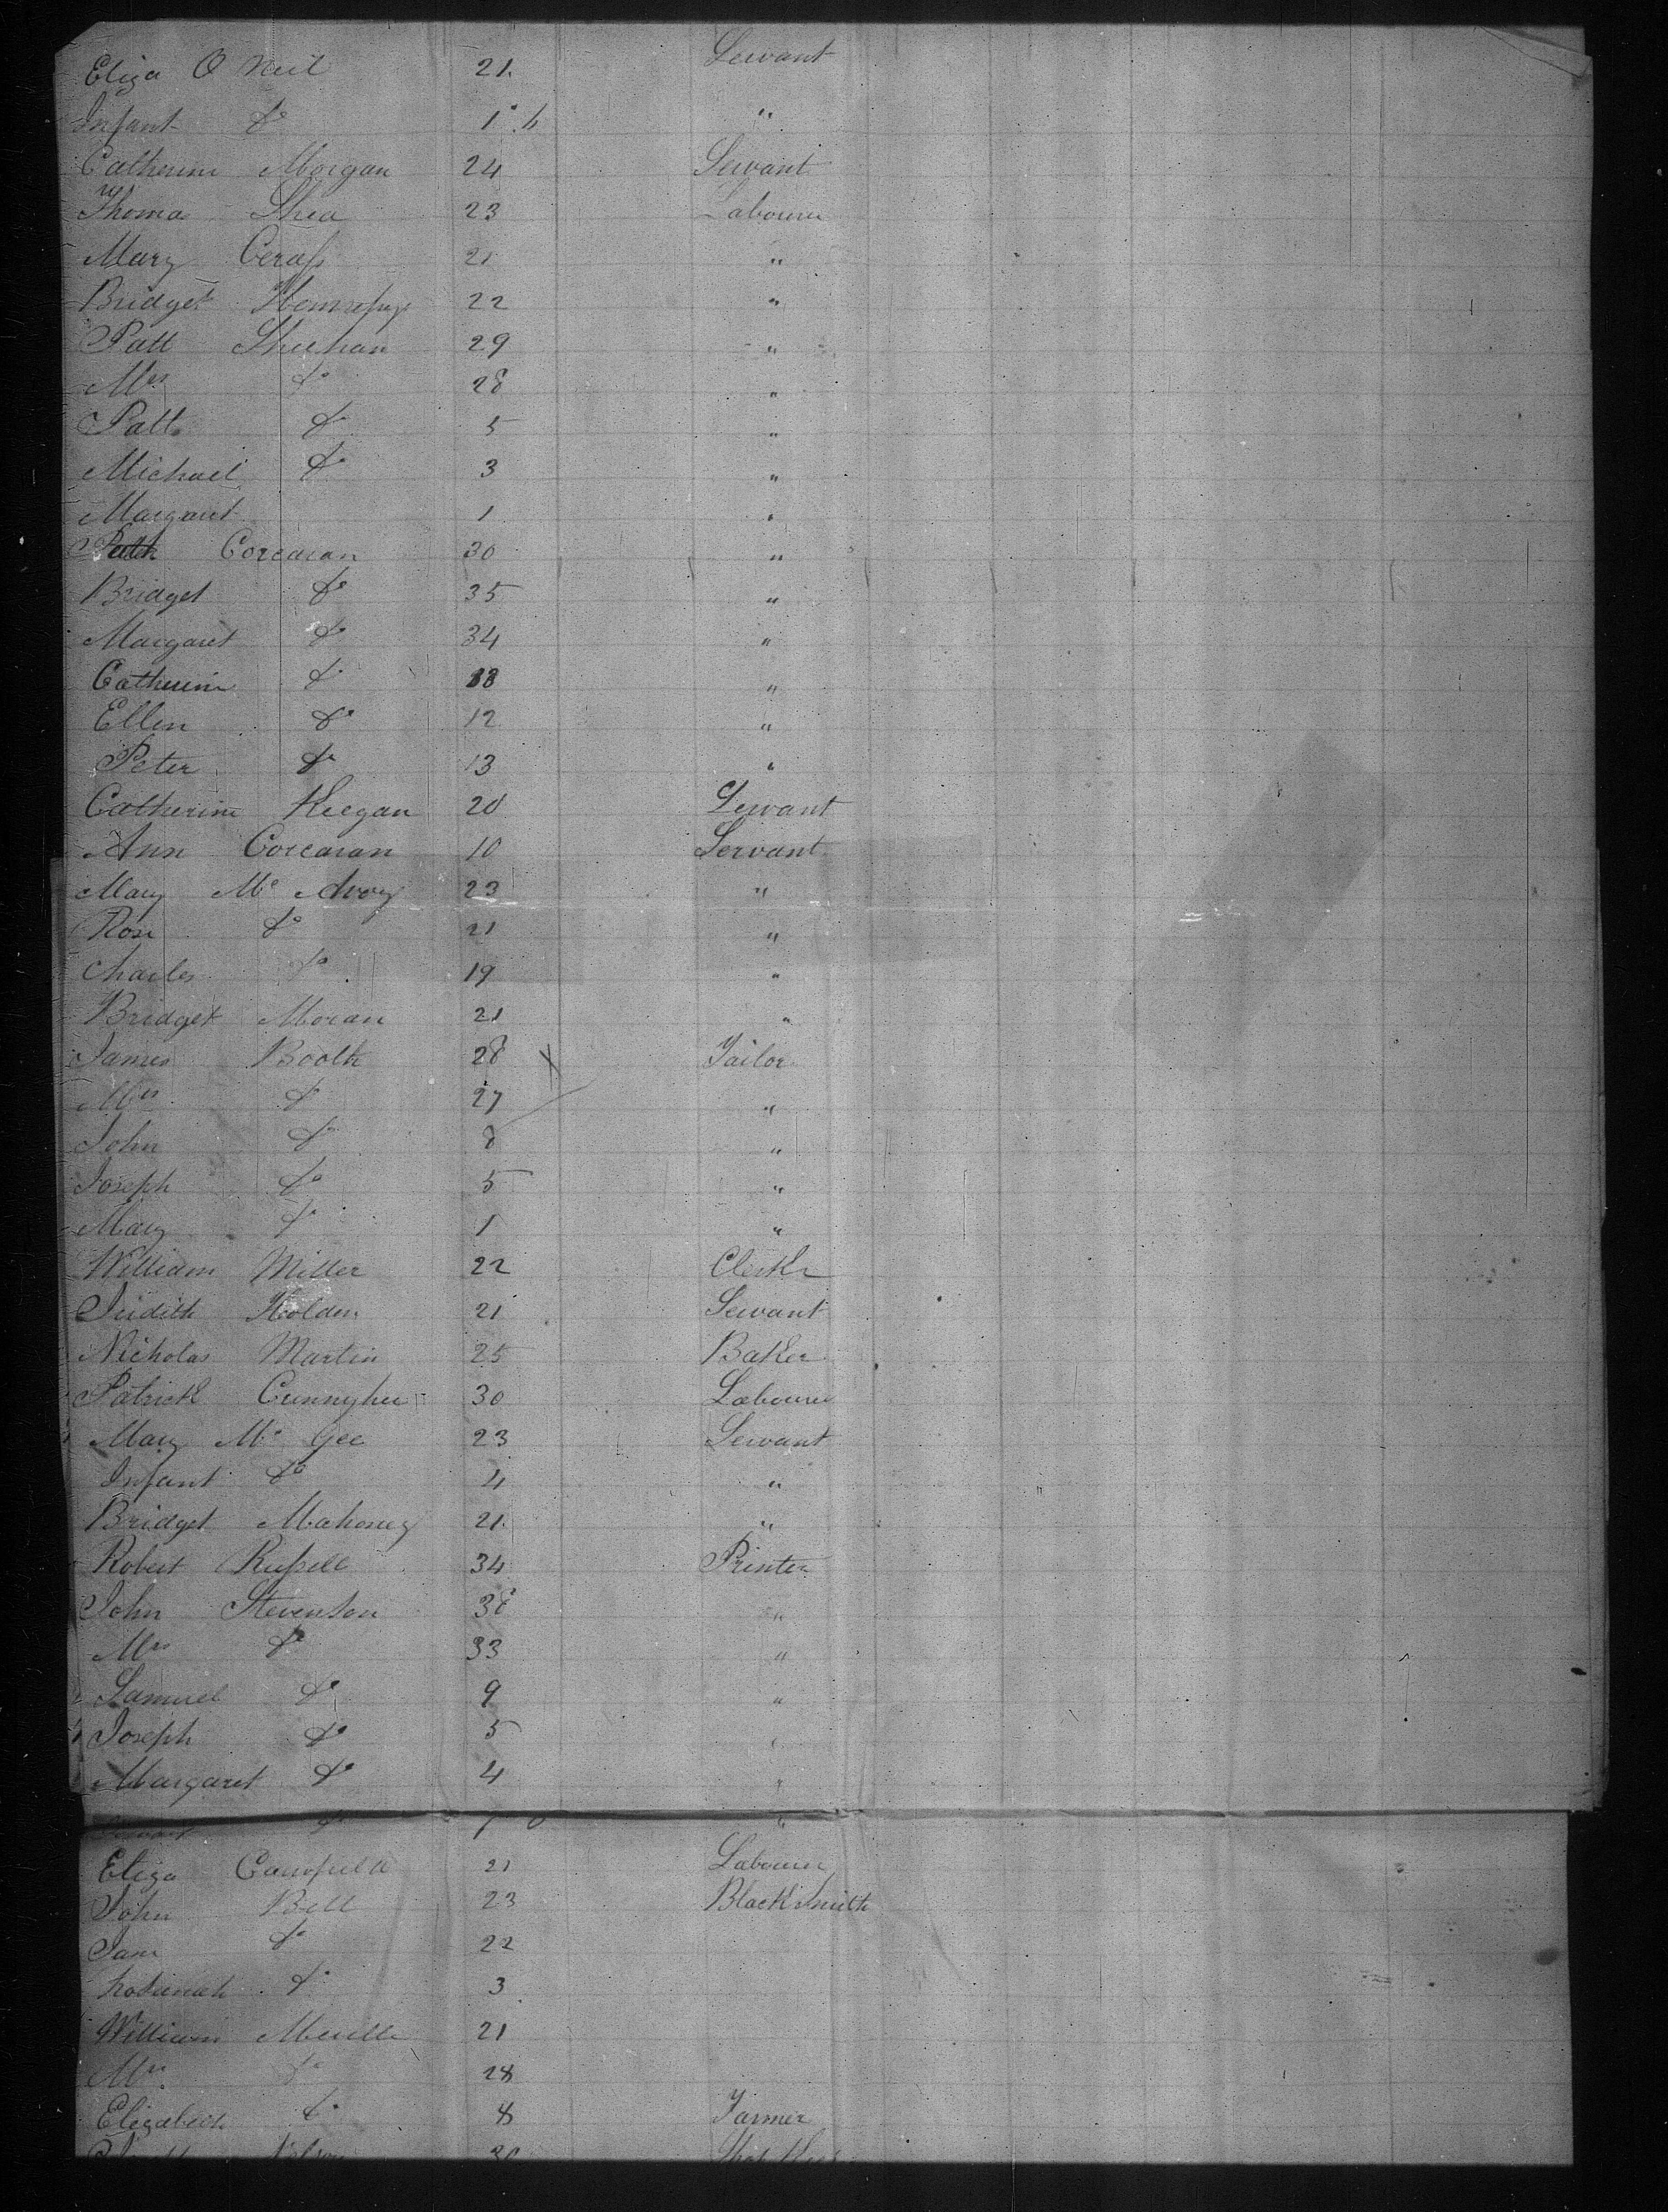 Eliza O Neil 21. Servant
Infant do "
Catherine Morgan 24 Servant
Thomas Shea 23 Labourer
Mary 21 "
Bridget 22 "
Patt Sheehan 29 "
Mrs do 28 "
Patt do 5 "
Michael do 3 "
Margaret 1 "
Corcoran 30 "
Bridget do 35 "
Margaret do 34 "
Catherine do "
Ellen do 12 "
Peter do 13 "
Catherine Keegan 20 Servant
Ann Corcoran 10 Servant
Mary Mc Avoy 23 "
Rose do 21 "
Charles do 19 "
Bridget Moran 21 "
James Booth 28 Tailor
Mrs do 27 "
John do 8 "
Joseph do 5 "
Mary do 1 "
William Miller 22 Clerk
Judith Holden 21 Servant
Nicholas Martin 25 Baker
Patrick Cunnyher 30 Labourer
Mary Mc Gee 23 Servant
Infant do 4 "
Bridget Mahoney 21. "
Robert Russell 34 Printer
John Stevenson 38 "
Mrs do 33 "
Samuel do 9 "
Joseph do 5 "
Margaret do 4 "
do 1 "
Eliza 21 Labourer
John Bell 23 Black Smith
Jane do 22
do 3
William 21
Mrs do 28
Elizabeth do 8 Farmer